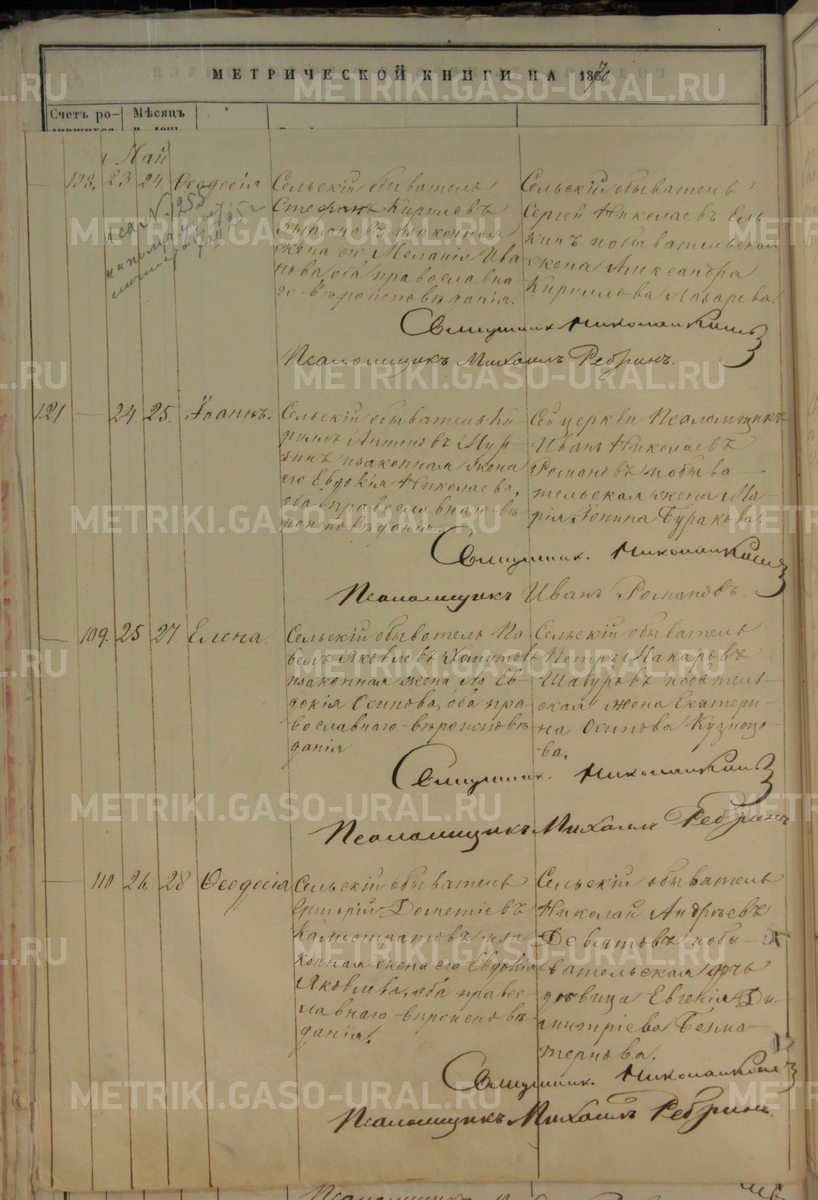 МЕТРИЧЕСКОЙ КНИГИ НА 1870
Счетъ ро- Мѣсяцъ
Май
108. 23 24 Ѳеодосія
Сельскій обыватель
Стефанъ Кириловъ
законная
жена его Меланія Ива
нова, оба православна
го вѣроисповѣданія.
Сельскій обыватель
Сергій Николаевъ Ель
кинъ и обывательская
жена Александра
Кирилова Лазарева
Священникъ Николай
Псаломщикъ Михаилъ Ребринъ.
121 — 24 25. Іоаннъ.
Сельскій обыватель Ки
рилъ Антоновъ Мур
зинъ и законная жена
его Евдокія Николаева,
оба православнаго вѣ
роисповѣданія.
Сей церкви Псаломщикъ
Иванъ Николаевъ
Романовъ и обыва
тельская жена Ма
рія Іонина Буракова.
Священник. Николай
Псаломщикъ Иванъ Романовъ.
— 109. 25 27 Елена.
Сельскій обыватель Па
велъ Яковлевъ Хомутовъ
и законная жена его Ев
докія Осипова, оба пра
вославнаго вѣроисповѣ
данія
Сельскій обыватель
Петръ Макаровъ
Шабуровъ
ская жена Екатери
на Осипова Кузнецо
ва.
Священник. Николай
Псаломщикъ Михаилъ Ребринъ
— 110 26 28 Ѳеодосія
Сельскій обыватель
Григорій Дометіевъ
Калистратовъ и за
конная жена его Евдокія
Яковлева, оба правос
лавнаго вѣроисповѣ
данія.
Сельскій обыватель
Николай Андреевъ
Девятовъ и обы
вательская
девица Евгенія Ди
митріева Безма
тернова.
Священник. Николай
Псаломщикъ Михаилъ Ребринъ.
METRIKI.GASO-URAL.RU